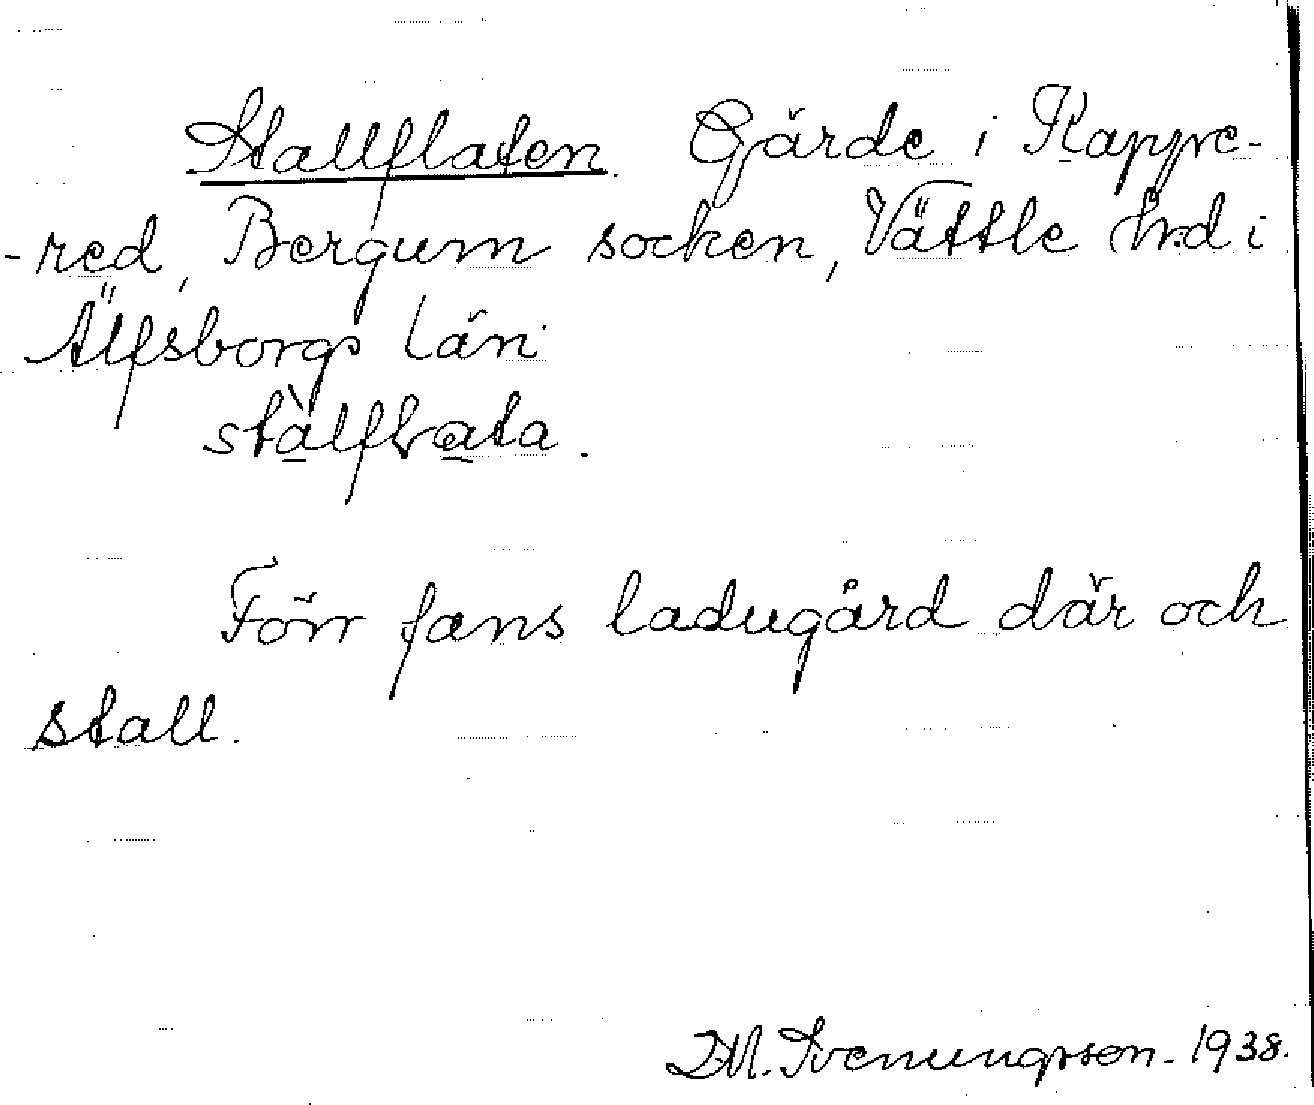 Stallflaten. Gärde i Kappe-
-red, Bergum socken, Vättle hrd i
Älfsborgs län
stàlflata.
Förr fans ladugård där och
stall.
D.M. Svenungsson - 1938.